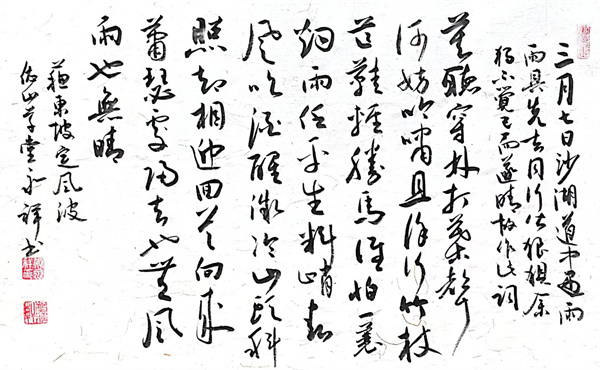 三月七日沙湖道中遇雨
雨具先去同行皆狼狽余
獨不覺已而遂晴故作此詞
莫聽穿林打葉聲
何妨吟嘯且徐行竹杖
芒鞋輕勝馬誰怕一蓑
烟雨任平生料峭春
風吹酒醒微冷山頭斜
照却相迎回首向來
蕭瑟處歸去也無風
雨也無晴
蘇東坡定風波
山草堂永祥書